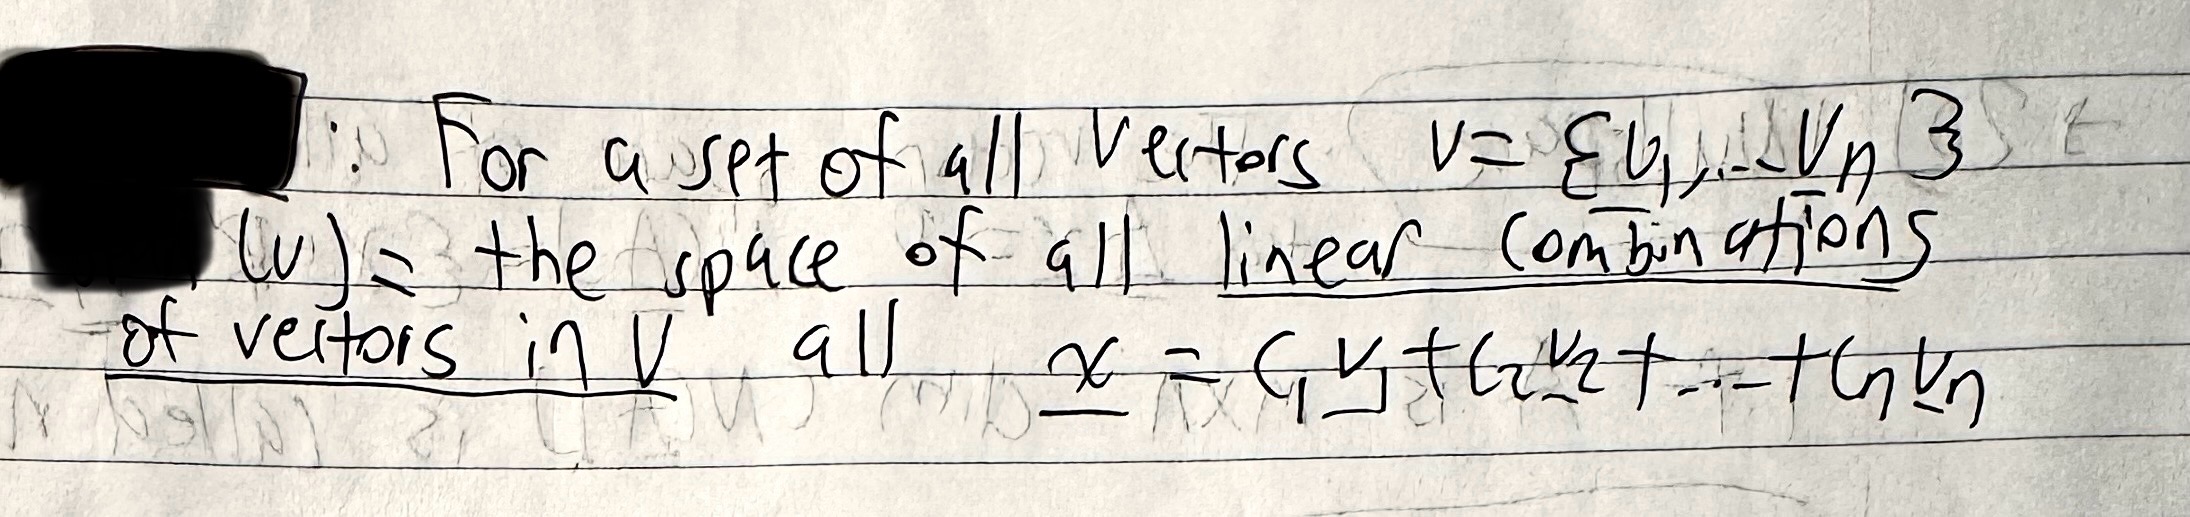 : For a set of all vectors V = {v₁, ... vₙ}
(v) = the space of all linear combinations
of vectors in V all x = c₁v₁ + c₂v₂ + ... + cₙvₙ